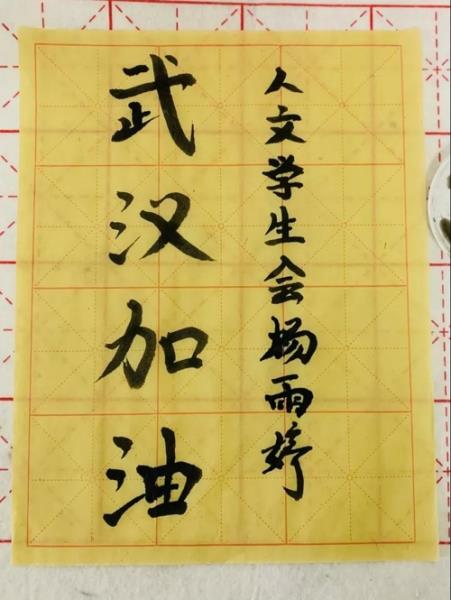 武汉加油
人文学生会杨雨婷